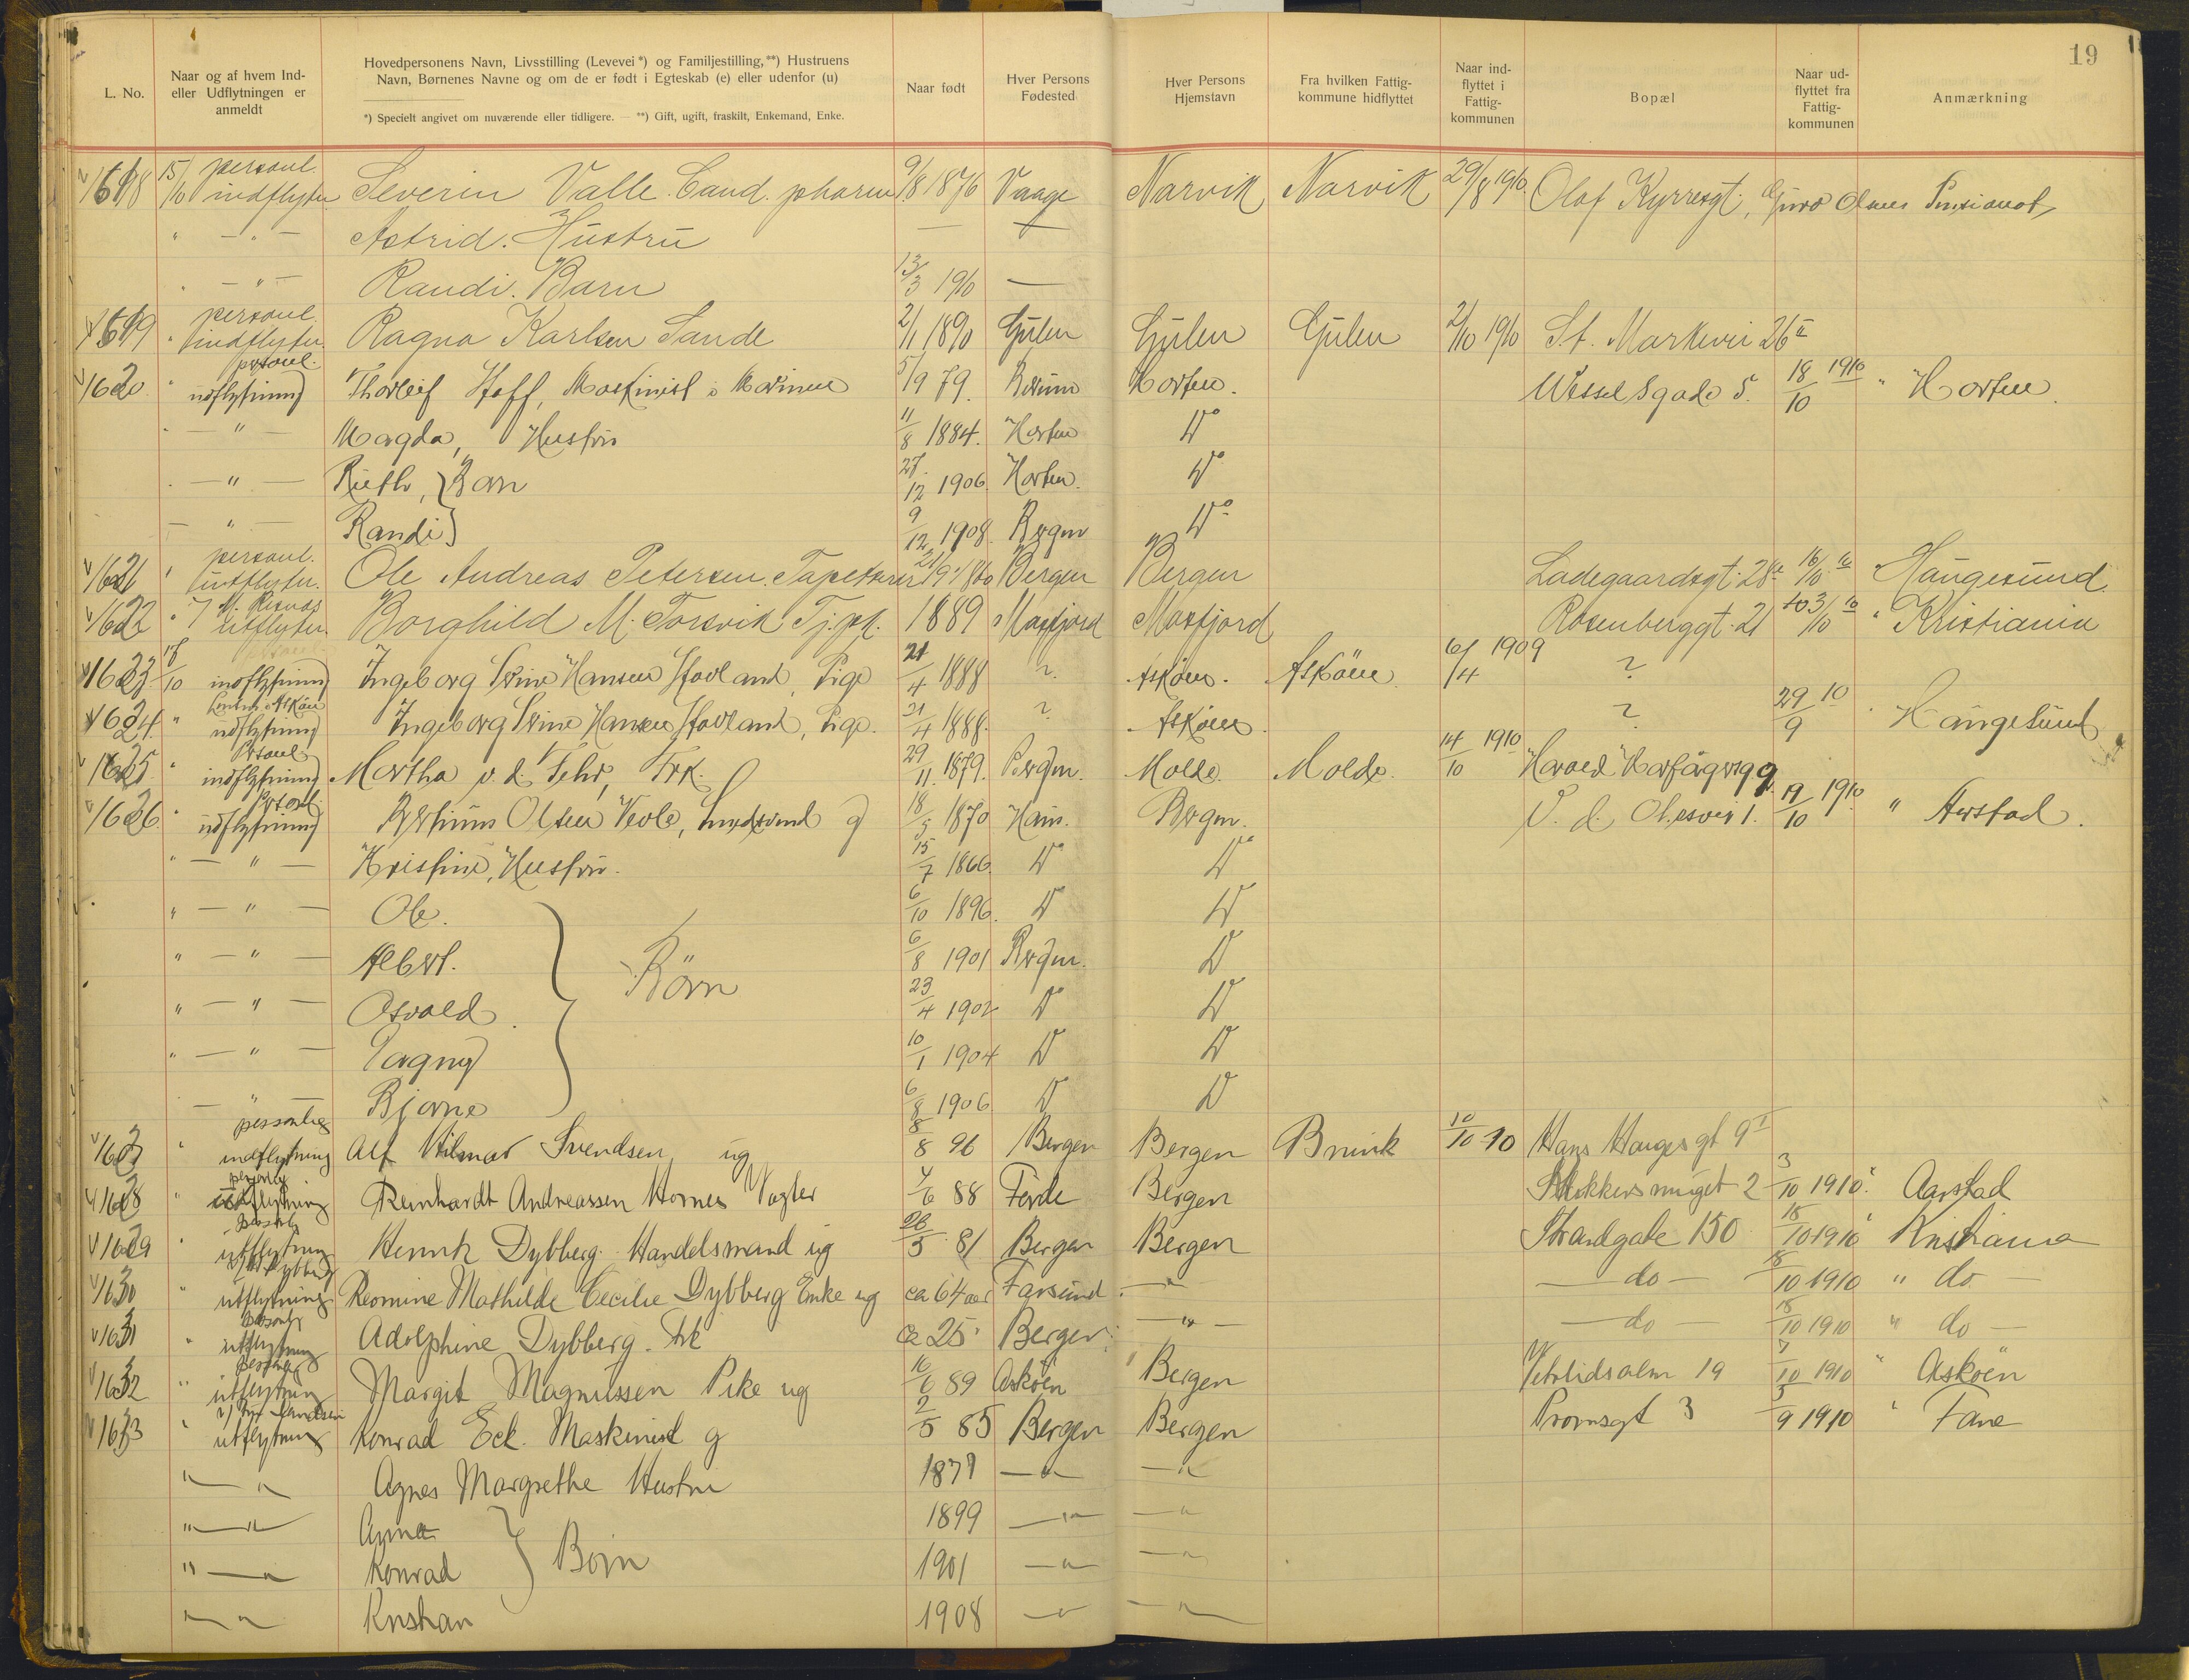 19
L. No. | Naar og af hvem Ind- eller Udflytningen er anmeldt | Hovedpersonens Navn, Livsstilling (Levevei*) og Familjestilling,**) Hustruens Navn, Børnenes Navne og om de er født i Egteskab (e) eller udenfor (u) *) Specielt angivet om nuværende eller tidligere. — **) Gift, ugift, fraskilt, Enkemand, Enke. | Naar født | Hver Persons Fødested | Hver Persons Hjemstavn | Fra hvilken Fattig-kommune hidflyttet | Naar ind-flyttet i Fattig-kommunen | Bopæl | Naar ud-flyttet fra Fattig-kommunen | Anmærkning
1618 15/10 personl. indflytn. Severin Valle. Cand. pharm 9/8 1876 Vaage Narvik Narvik 29/8 1910 Olaf Kyrresgt.
" — " — Astrid. Hustru — —
" — " — Randi. Barn 13/3 1910 —
1619 " personl. indflytn. Ragna Karlsen Sande 2/1 1890 Gulen Gulen Gulen 2/10 1910 St. Markevei 26
1620 " personl. Thorleif Hoff, Maskinist i Marinen 5/9 79. Horten. Wessels gade 5. 18/10 1910 " Horten.
" — " — Magda, Hustru 11/8 1884. Horten Do
" — " — Ruth, } Barn 27/12 1906. Horten. Do
— " — Randi } 9/12 1908. Bergen Do
1621 " personl. utflytn. Ole Andreas Petersen. Tapetserer 21/9 1860 Bergen Bergen Ladegaardsgt. 28 16/10 10 Haugesund.
1622 " utflytn. Borghild M. Torsvik Tj.pk. 1889 Masfjord Masfjord Rosenberggt. 21 3/10 10 " Kristiania
1623 18/10 indflytning Ingeborg Stine Hansen Hovland, Pige 21/4 1888 ? Askøen. Askøen 6/4 1909 ?
1624 " utflytning Ingeborg Stine Hansen Hovland, Pige. 21/4 1888. ? Askøen. ? 29/9 10 Haugesund
1625 " Personl indflytning Martha v. d. Fehr, Frk. 29/11 1879. Bergen. Molde. Molde. 14/10 1910 Harald Haarfagersg 9
1626 " Personl. utflytning Olsen g 18/5 1870 Haus. Bergen. 19/10 1910 " Aarstad.
" — " — Kristine, Hustru. 15/7 1866. Do Do
" — " — Ole. 6/10 1896. Do Do
" — " — Albert. } Børn 6/8 1901 Bergen. Do
" — " — Osvald. 23/4 1902 Do Do
" — " — Dagny 10/1 1904 Do Do
— " — Bjarne 6/8 1906 Do Do
1627 " personlig indflytning Alf Hilmar Svendsen ug 8/8 96 Bergen Bergen 10/10 10 Hans Hauges gt 9
1628 " personlig utflytning Reinhardt Andreassen Hornes Vogter 4/6 88 Førde Bergen 2 3/10 1910. Aarstad
1629 " utflytning Henrik Dybberg. Handelsmand ug 26/5 81 Bergen Bergen Strandgate 150 18/10 1910 Kristiania
1630 " utflytning Mathilde Cecilie Dybberg Enke ug ca 64 aar Farsund — " — — do — 18/10 1910 " do —
1631 " utflytning Adolphine Dybberg. Frk ca 25 Bergen — " — — do — 18/10 1910 " do —
1632 " personlig utflytning Margit Magnussen Pike ug 16/6 89 Askøen Bergen Vetrlidsalm 19 7/10 1910 " Askøen
1633 " utflytning Konrad Eck. Maskinist g 2/5 85 Bergen Bergen Promsgt 3 9 1910 " Fane
" — " Agnes Margrethe Hustru 1877 — " — — "
" — " Anna 1899 — " — — "
" — " Konrad } Børn 1901 — " — — "
" — " Kristian 1908 — " — — "